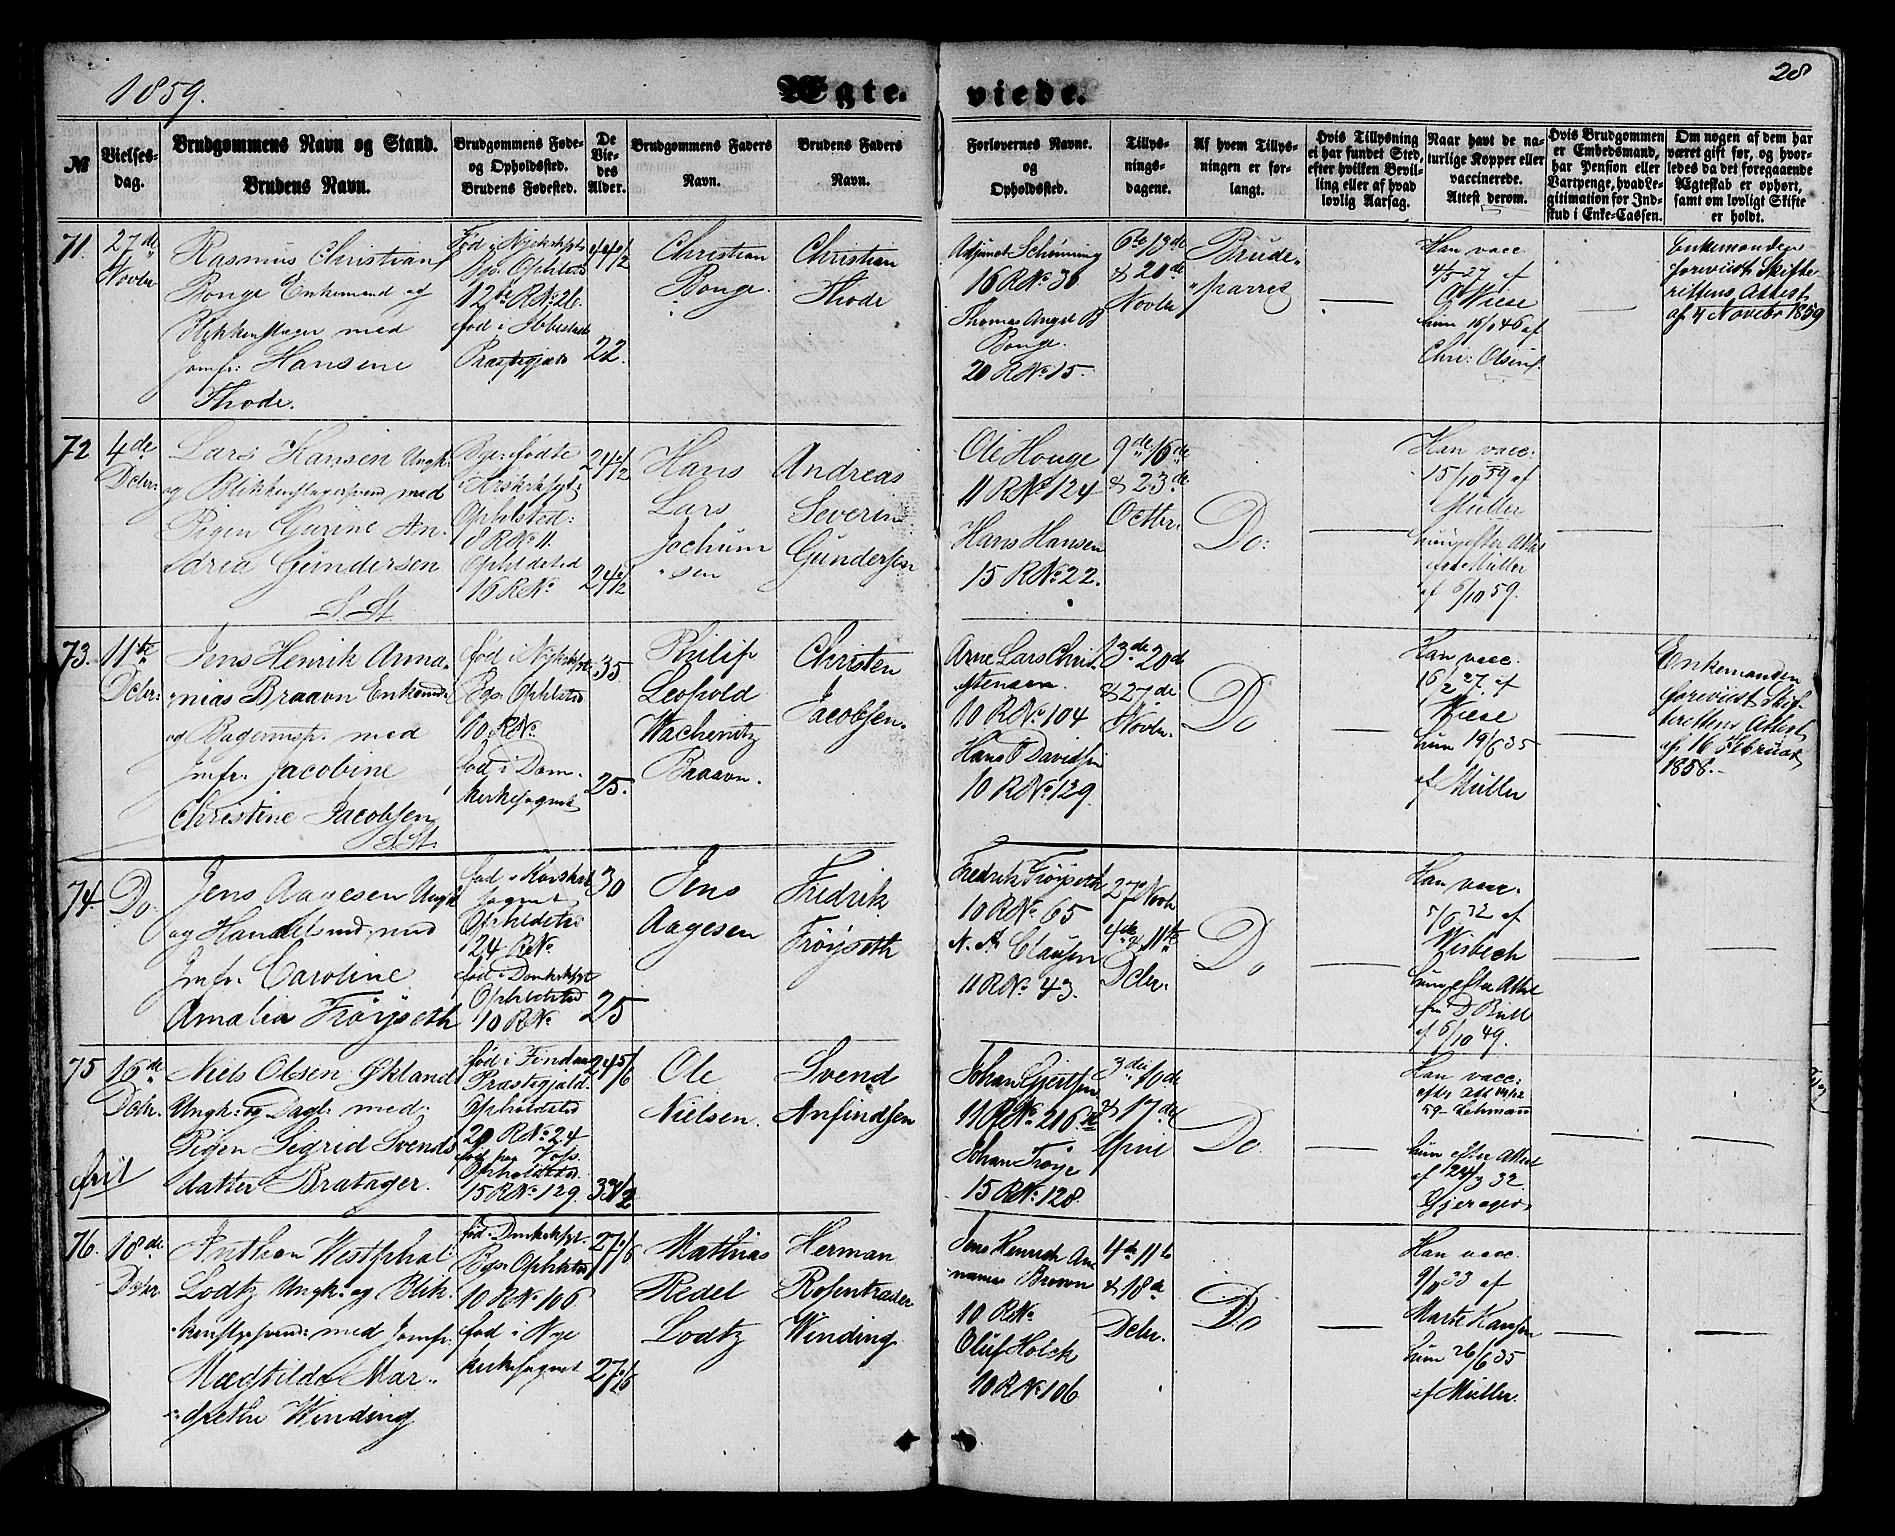 1859.
Ægte-
viede.
28
№
Vielses-
dag.
Brudgommens Navn og Stand.
Brudens Navn.
Brudgommens Føde-
og Opholdssted.
Brudens Fødested.
De
Vie-
des
Alder.
Brudgommens Faders
Navn.
Brudens Faders
Navn.
Forlovernes Navne.
og
Opholdssted.
Tillys-
nings-
dagene.
Af hvem Tillys-
ningen er for-
langt.
Hvis Tillysning
ei har fundet Sted,
efter hvilken Bevil-
ling eller af hvad
lovlig Aarsag.
Naar havt de na-
turlige Kopper eller
vaccinerede.
Attest derom.
Hvis Brudgommen
er Embedsmand,
har Pension eller
Vartpenge, hvad Le-
gitimation for Ind-
skud i Enke-Cassen.
Om nogen af dem har
været gift før, og hvor-
ledes da det foregaaende
Ægteskab er ophørt,
samt om lovligt Skifte
er holdt.
71.
27de
Novbr
Rasmus Christian
Bonge Enkemand og
Blikkenslager med
Jomfr: Hansine
Thode.
Opholdsted
12te R No 26.
Præstegjæld
44 1/2
22.
Christian
Bonge.
Christian
Thode
Adjunct Schönning
16 R No 36
Thomas Angel B
Bonge.
20 R No 15.
6te 13de
& 20de
Novbr
Brude-
parret
Han vacc
4/5 27 af
Wiese
hun 15/9 46 af
Chri: Olsen.
Enkemanden
foreviist Skifte-
rettens Attest
af 4 Novebr 1859
72
4de
Dcbr:
Lars Hansen Ungk:
og Blikkenslagersvend med
Pigen Gurine An-
drea Gundersen
S. St
Begge fødte
i Korskirksgt:
Ophlsted:
8 R No 11.
Opholdsted
16 R No
24 1/2
24 1/2
Hans
Lars
Jochum
sen
Andreas
Severin
Gundersen
Ole Houge
11 R No 124
Hans Hansen
15 R No 22.
9de 16de
& 23de
Octbr.
Do:
Han vacc:
15/10 59 af
Müller
hun efter Attest
fra Müller
af 6/10 59.
73.
11te
Dcbr:
Jens Henrik Anna-
nias Braavn Enkemd
og Bagermstr. med
Jmfr. Jacobine
Christine Jacobsen
S. St.
fød i Nykirksgt
Ophlsted
10 R No
fød i Dom-
kirkesognet
35.
25.
Philip
Leopold
Wachenitz
Braavn.
Christen
Jacobsen.
Arne Lars Christ
stensen
10 R No 104
Hans P Davidsen
10 R No 129.
13de 20de
& 27de
Novbr.
Do
Han vacc.
16/2 27 af
Wiese
hun 19/6 35
af Müller
Enkemanden
foreviist Skif-
terettens Attest
af 16 Februar
1858.
74.
Do.
Jens Aagesen Ungk
og Handelsmd med
Jmfr. Caroline
Amalia Frøyseth
fød i Korskirk
sognet
Opholdsted
24 R No
fød i Domkirksgt
Opholdsted
10 R No
30
25
Jens
Aagesen
Fredrik
Frøyseth
Fredrik Frøyseth
10 R No 65
N. A Clausen
11 R No 43.
27 Novb
4de & 11te
Dcbr.
Do
Han vacc.
5/6 32 af
Wisbech
hun efter Attest
fra D Bull
af 6/10 49.
75
16de
Dcbr.
frit
Niels Olsen Økland
Ungk: og Dagl: med
Pigen Sigrid Svends
datter Bratager.
fød i Findaas
Præstegjæld
Opholdsted
20 R No 24
fød paa Vos.
Opholdsted
15 R No 129.
24 5/6
Ole
Nielsen
Svend
Anfindsen
Johan Gjertsen
11 R No 216
Johan Frøye
15 R No 128.
3die 10de
& 17de
April
Do
Han vacc:
59. Lehmann
hun efter Attest
af 12 4/3 32
76.
18de
Dcbr
Anthon Westphal
Lodtz Ungk: og Blik-
kenslgsvend: med Jomfr.
Mægthilda Mar-
grethe Winding
fød i Domkirksgt.
Opholdsted
10 R No 106
fød i Nye
kirkesognet
27 1/6
Mathias
Redel
Lodtz
Herman
Rosentræder
Winding.
Jens Henrich Ana
nanias Bravn
10 R No
Oluf Holck
10 R No 106
4de 11te
& 18de
Dcbr.
Do
Han vacc.
33 af
Marte Hansen
hun 26/6 35
af Müller.